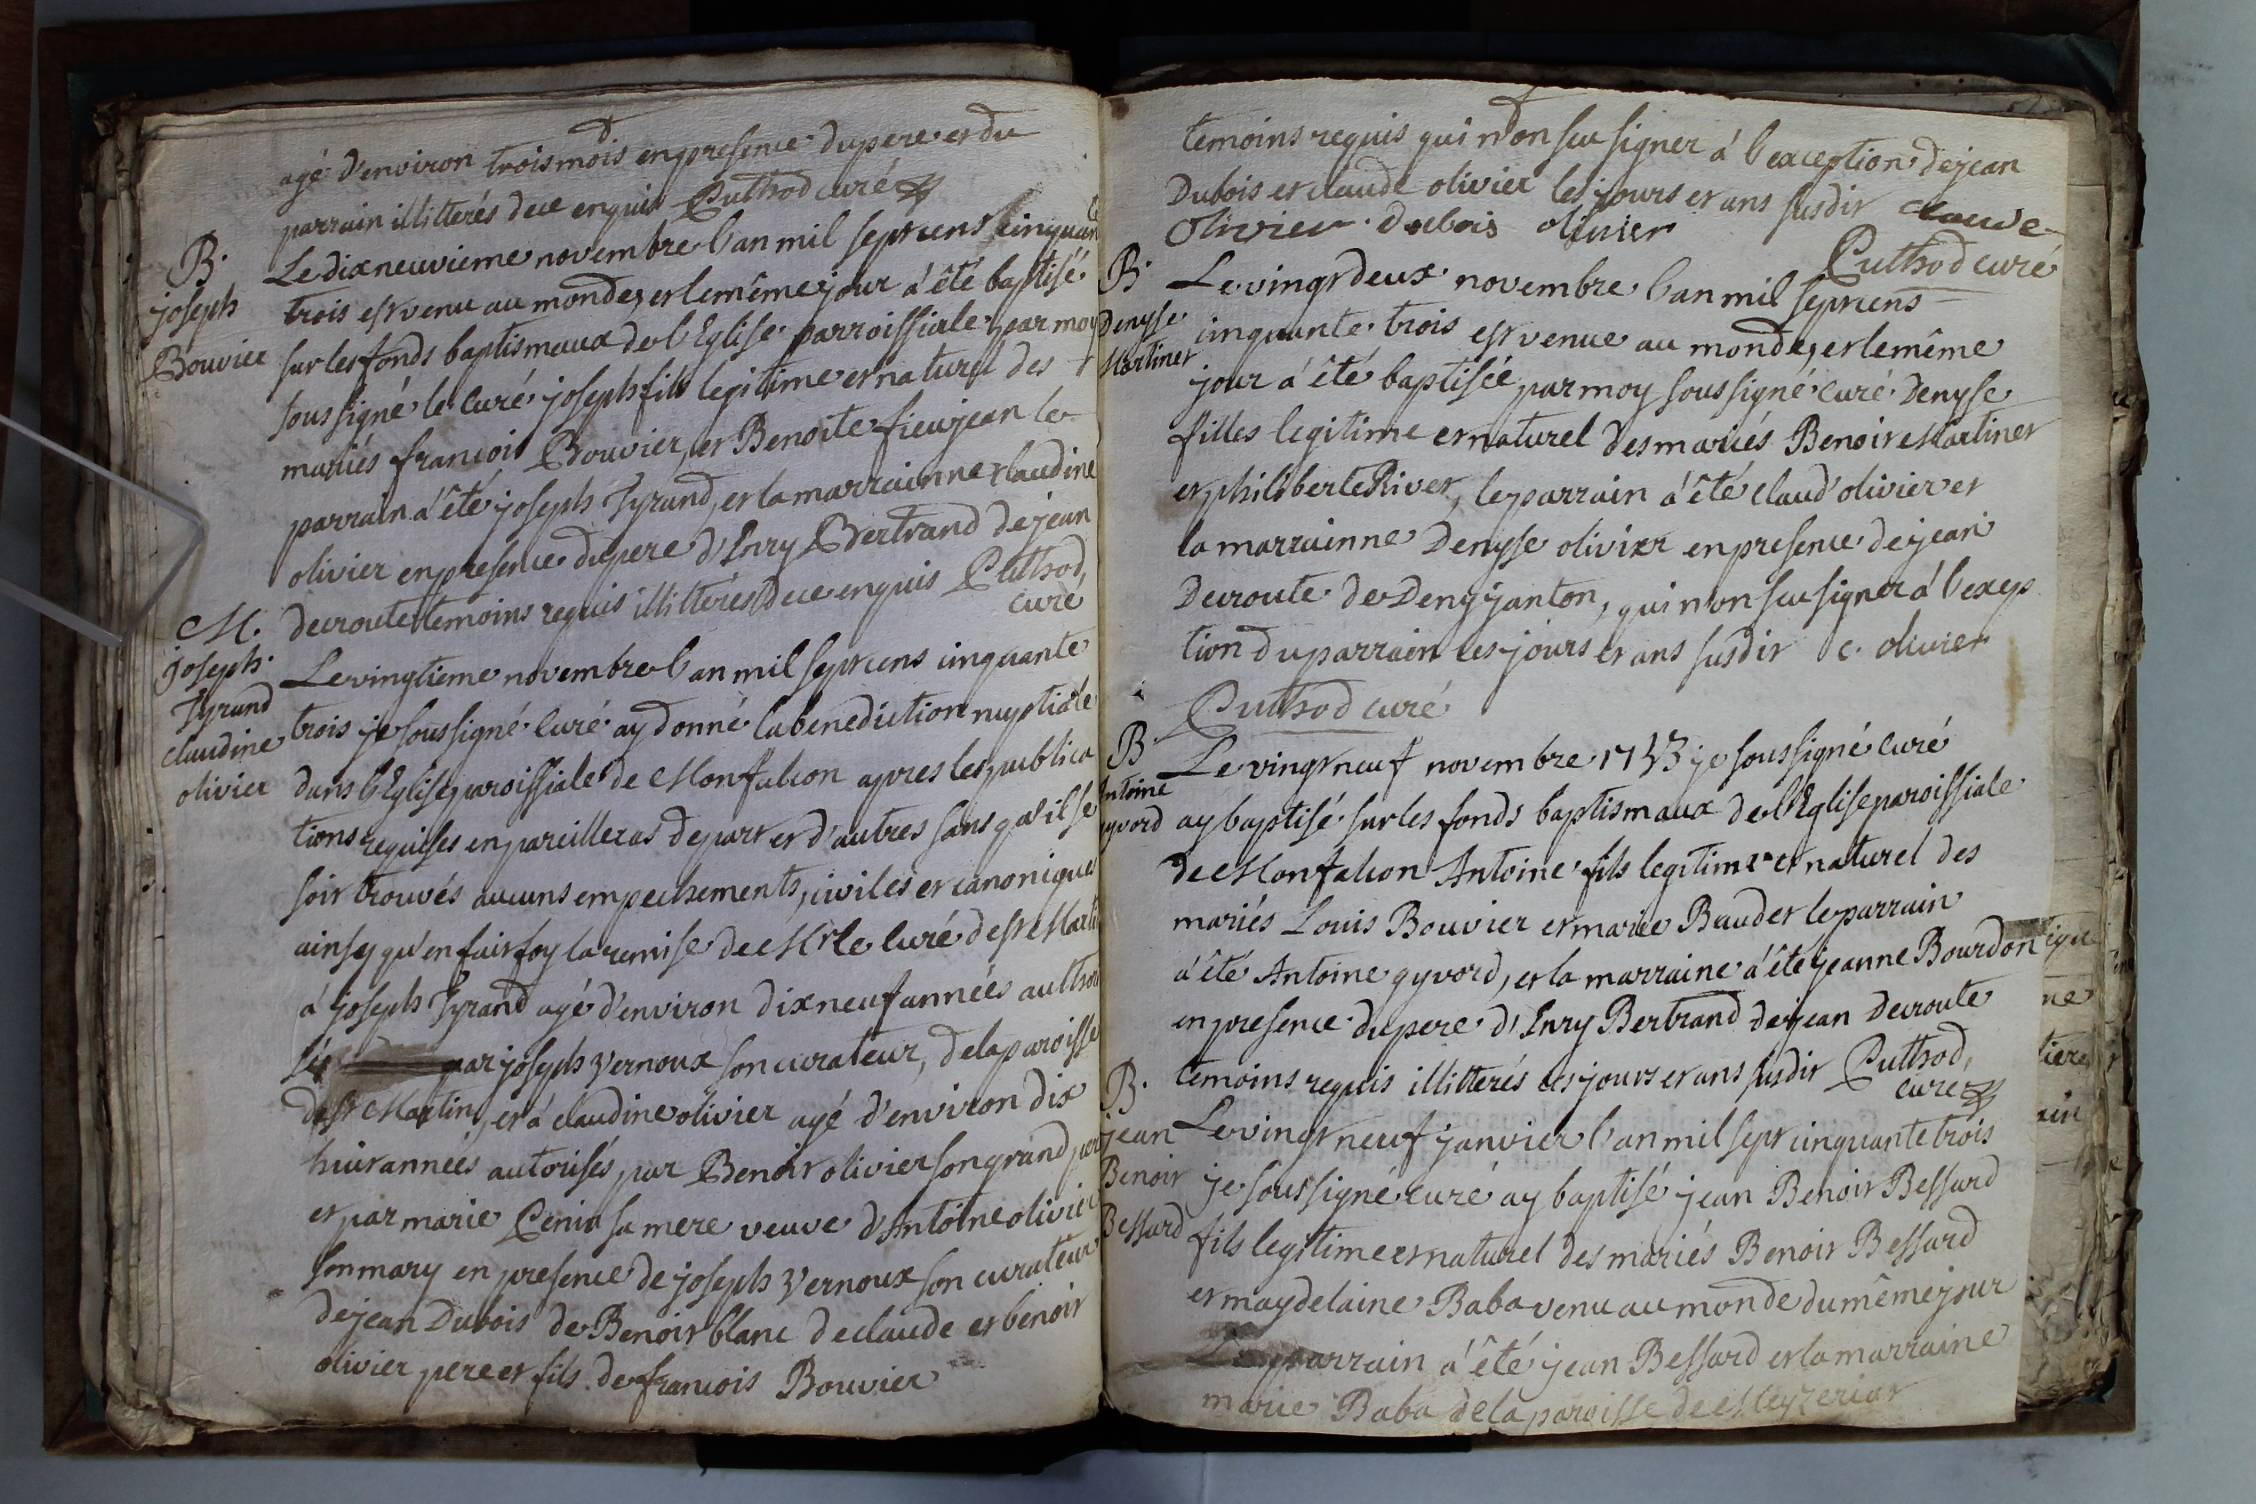 agé d'environ trois mois en presence du pere et du
parrain illitterés de ce enquis Puthod curé
B.
joseph
Bouvier
Le dixneuvieme novembre l'an mil sept cens cinquante
trois est venu au monde, et le même jour a été baptisé
sur les fonds baptismaux de l'Eglise parroissiale par moy
soussigné le curé joseph fils legitime et naturel des
mariés francois Bouvier, et Benoite fieujean le
parrain a été joseph Tyrand, et la marrainne claudine
olivier en presence du pere d'Enry Bertrand de jean
decroute temoins requis illitterés de ce enquis Puthod,
curé
M.
joseph
Tyrand
claudine
olivier
Le vingtieme novembre l'an mil sept cens cinquante
trois je soussigné curé ay donné la benediction nuptiale
dans l'Eglise paroissiale de Monfalcon apres les publica
tions requises en pareille cas de part et d'autres sans qu'il se
soit trouvés aucuns empechements, civiles et canoniques
ainsy qu'en fait foy la remise de Mr le curé de st Martin
á joseph Tyrand agé d'environ dixneuf années autho
par joseph Vernoux son curateur, de la paroisse
de st Martin, et á claudine olivier agé d'environ dix
huit années autorisés par Benoit olivier son grand pere
et par marie sa mere veuve d'Antoine olivier
son mary en presence de joseph Vernoux son curateur
de jean Dubois de Benoit blanc de claude et benoit
olivier pere et fils de francois Bouvier
temoins requis qui n'on scu signer á l'exception de jean
Dubois et claude olivier les jours et ans susdit claude
Olivier dubois olivier
Puthod curé
B.
Denyse
Martinet
Le vingt deux novembre l'an mil sept cens
cinquante trois est venue au monde, et le même
jour a été baptisée par moy soussigné curé Denyse
filles legitime et naturel des mariés Benoit Martinet
et philiberte Rivet, le parrain a été claud olivier et
la marrainne Denyse olivier en presence de jean
Decroute de Deny janton, qui n'on scu signer á l'excep
tion du parrain les jours et ans susdit c. olivier
Puthod curé
B.
Antoine
gyvord
Le vingt neuf novembre 1753 je soussigné curé
ay baptisé sur les fonds baptismaux de l'Eglise paroissiale
de Monfalcon Antoine fils legitime et naturel des
mariés Louis Bouvier et marie Baudet le parrain
a été Antoine gyvord, et la marraine a été jeanne Bourdon
en presence du pere d'Enry Bertrand de jean Decroute
temoins requis illitterés les jours et ans susdit Puthod,
curé
B.
jean
Benoit
Bessard
Le vingt neuf janvier l'an mil sept cinquante trois
je soussigné curé ay baptisé jean Benoit Bessard
fils legitime et naturel des mariés Benoit Bessard
et maydelaine Baba venu au monde du même jour
Le parrain a été jean Bessard et la marraine
marie Baba de la paroisse de Meyzeriat